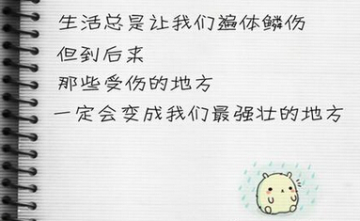 生活总是让我们遍体鳞伤
但到后来
那些受伤的地方
一定会变成我们最强壮的地方